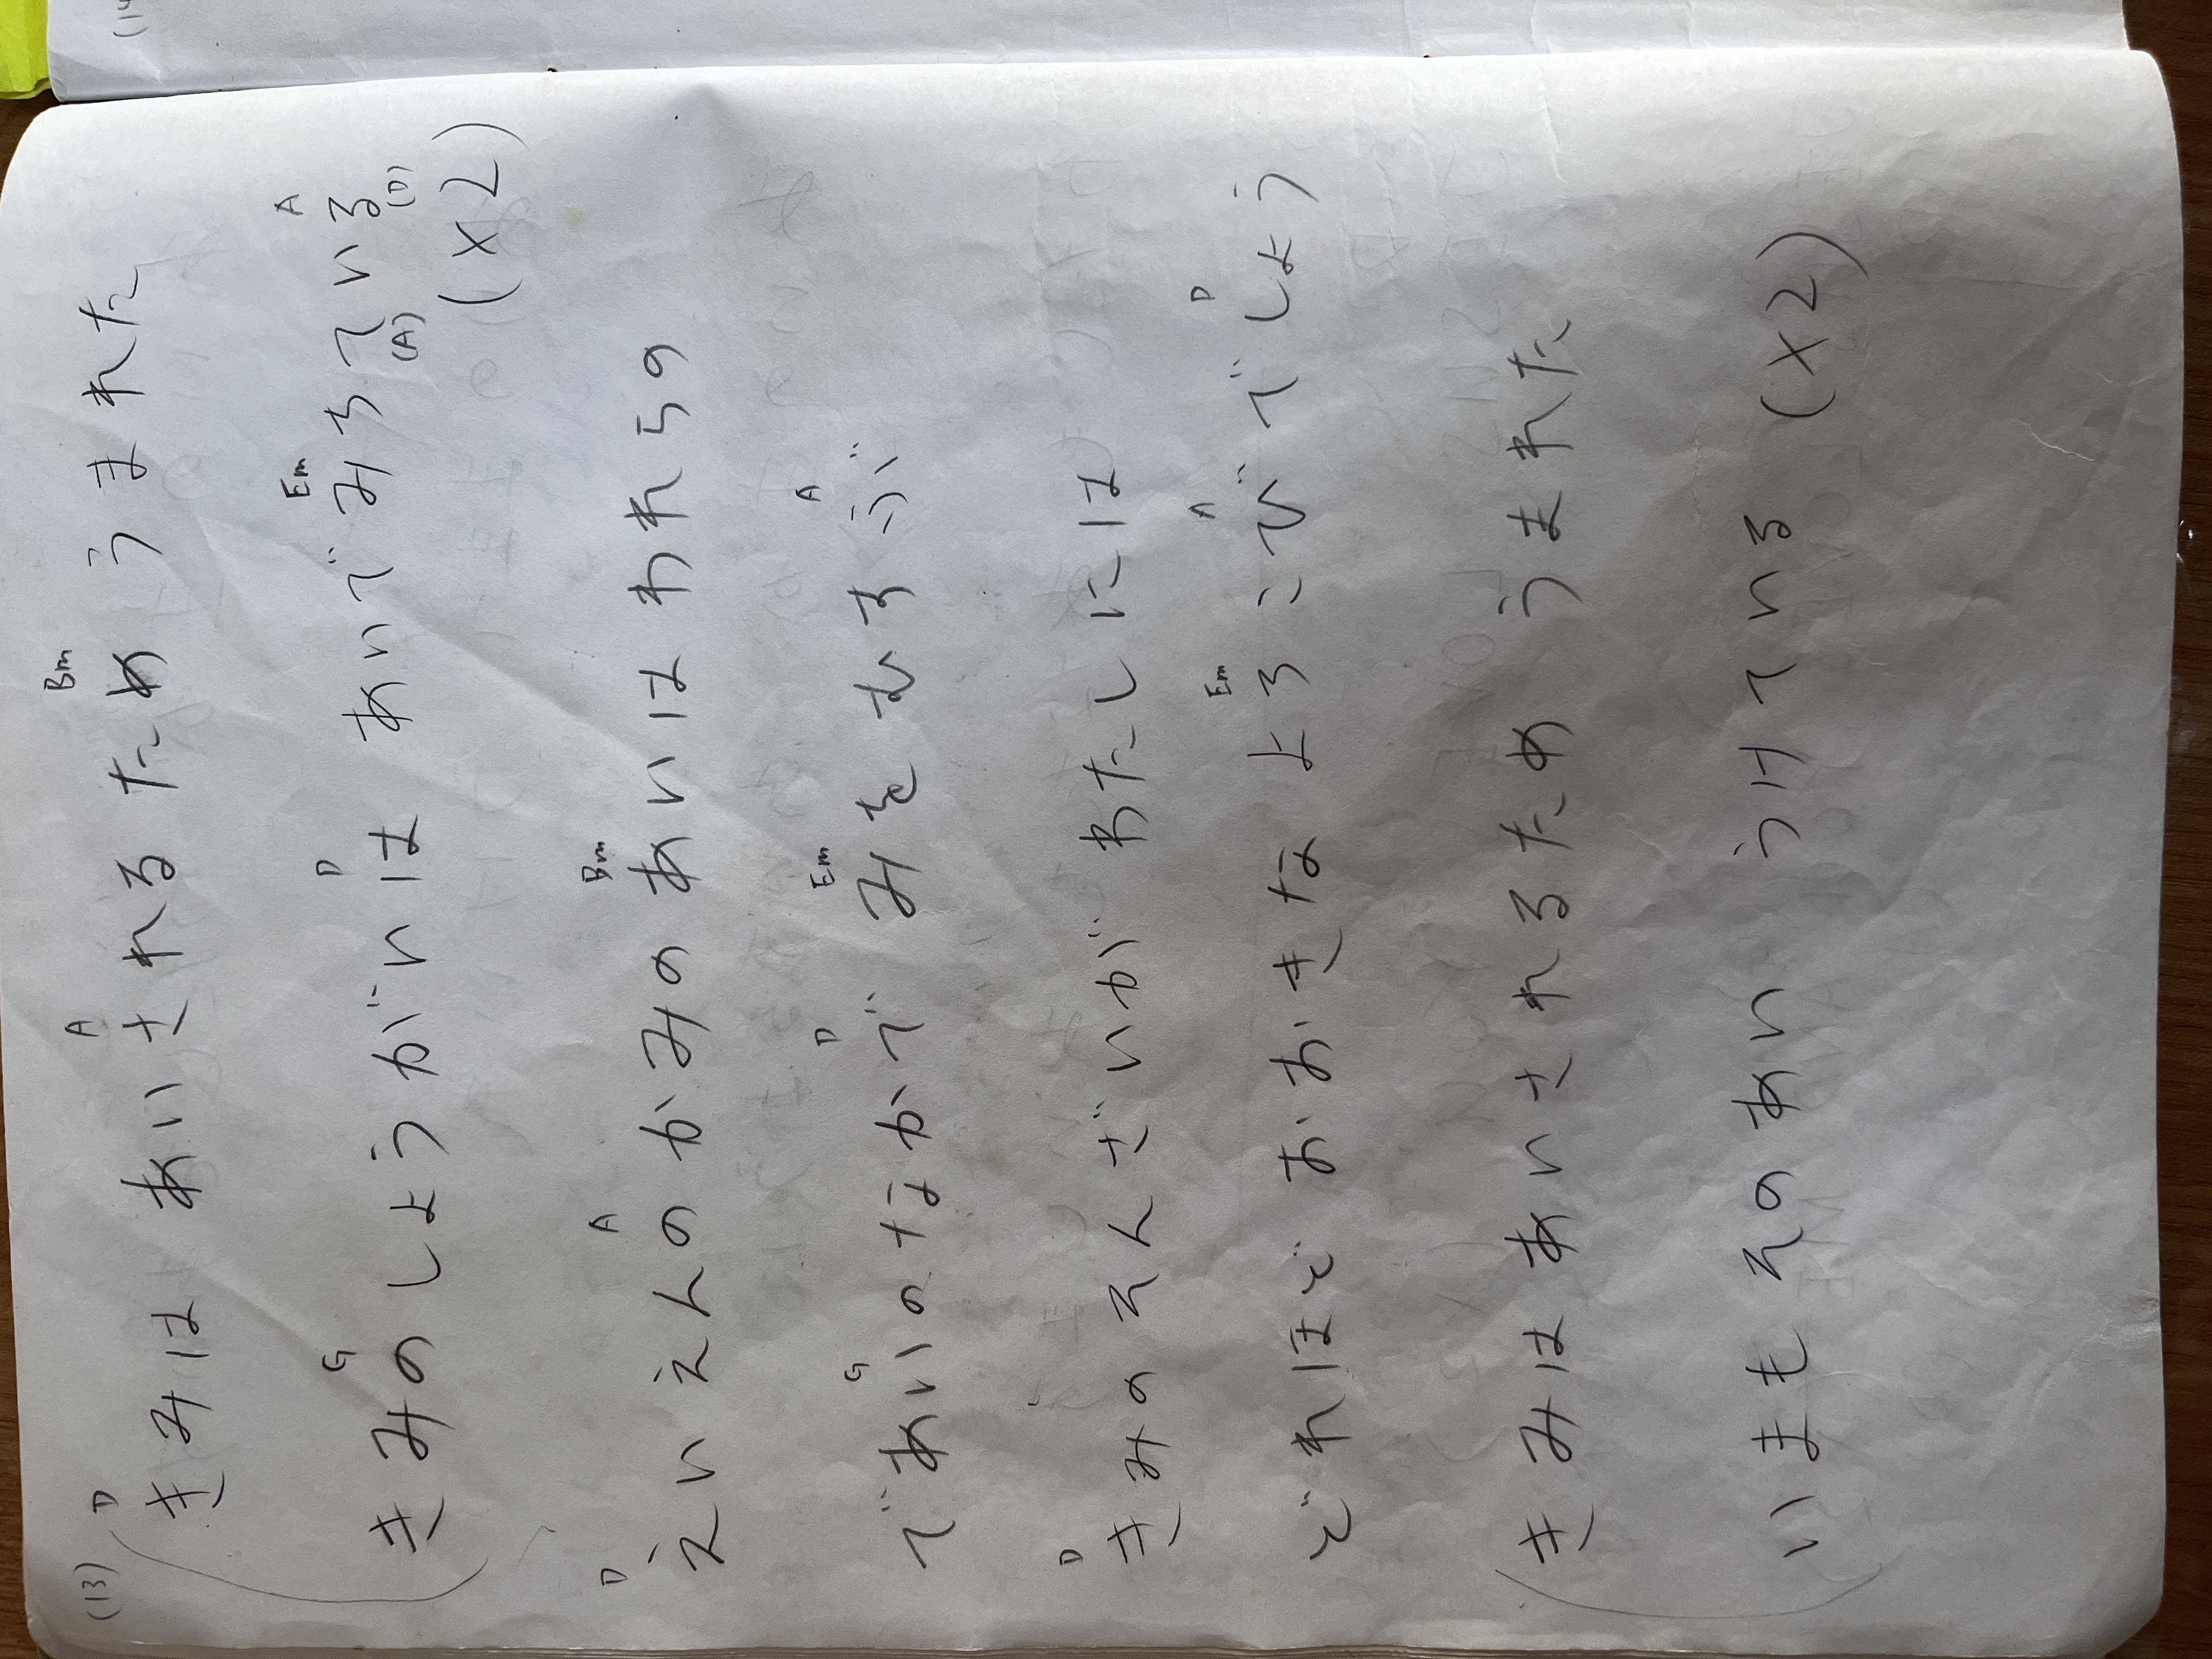 (13)
D A Bm
きみは あいされるため うまれた
G D Em A
きみのしょうがいは あいで みちている
(A) (D)
(x2)
D A Bm
えいえんの かみの あいは われらの
G D Em A
であいのなかで みをむすぶ
D
きみのそんざいが わたしには
Em A D
どれほど おおきな よろこびでしょう
きみは あいされるため うまれた
いまも そのあい うけている (x2)